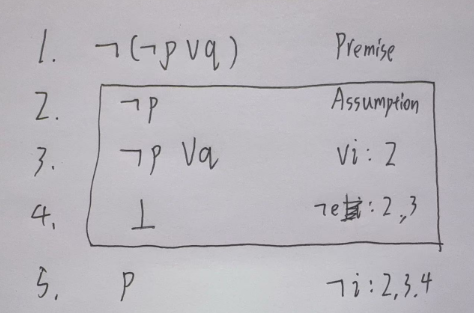 1. ¬(¬p ∨ q) Premise
2. ¬p Assumption
3. ¬p ∨q ∨i: 2
4. ⊥ ¬e: 2,3
5. p ¬i: 2,3,4